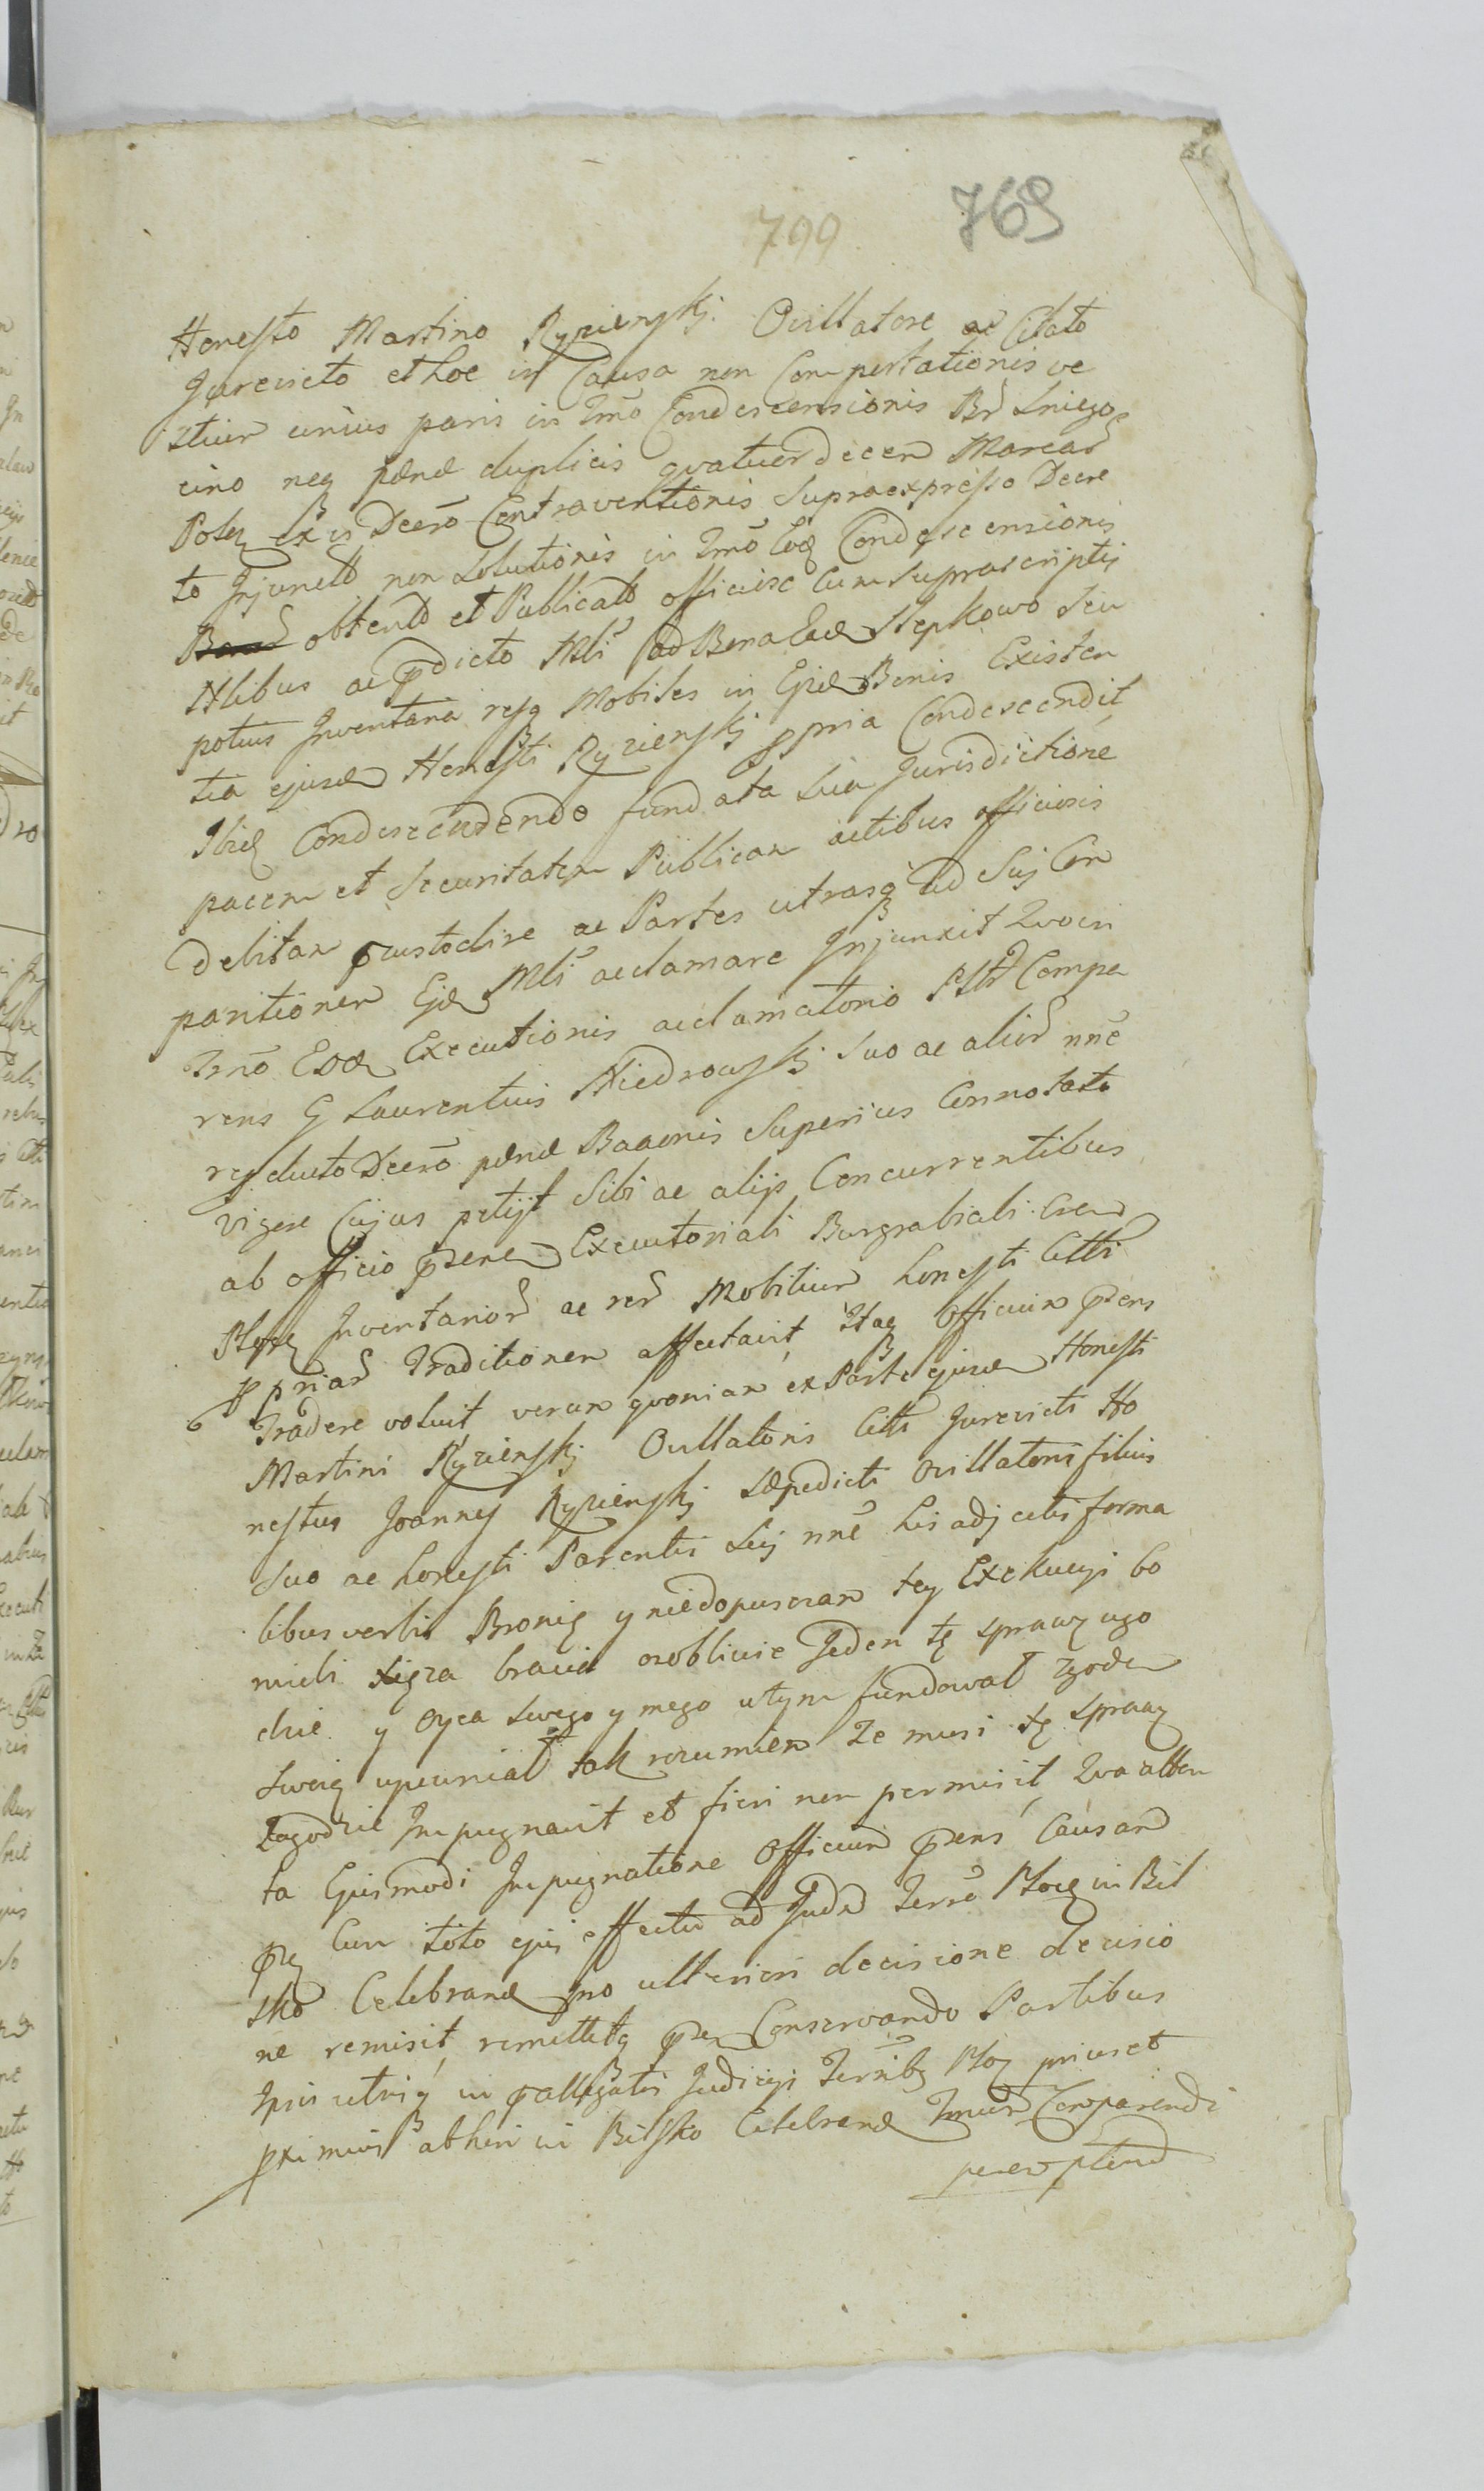 799 769
Honesto Martino Ryzienski Ovillatore ac Citato
Jurevicto et hoc in Causa non Comportationis ve
stium unius paris in Tmo Condescensionis Br Sniego
cino neq pænæ duplicis quatuordecem Marcar
Polq ex vi Decro Contraventionis Supraexpresso Decre
to Injuncto non Solutionis in Tmo Eoq Condescensionis
obtento et Publicato officiose Cum Suprascriptis
Nlibus ac pdicto Mli ad Bona Ead Stepkowo Seu
potius Inventaria resq Mobiles in Ejsd Bonis Existen
tia ejusd Honesti Ryzienski ppria Condescendit
Ibiq Condescendendo fundata Sua Jurisdictione
pacem et Securitatem Publicam actibus officiosis
debitam custodire ac Partes utrasq ad Sui Com
paritionem Ejd Mli acclamare Injunxit Quo in
Tmo Eod Executionis acclamatorio Pltr Compa
rens G Laurentius Niedrowski Suo ac alior nne
reproducto Decro pænæ Bannonis Superius Connotato
vigore Cujus petijt Sibi ac alijs Concurrentibus
ab officio psenti Executoriali Burgrabiali
Plocq Inventarior ac rer Mobilium honesti Citti
ppriar Traditionem affectavit, Itaq officium psens
Tradere voluit verum quoniam ex Parte ejusd Honesti
Martini Ryzienski Ovillatoris Citti Jurevicti Ho
nestus Joannes Ryzienski Sæpedicti Ovillatoris filius
Suo ac honesti Parentis Sui nne his adjectis forma
libus verbis Bronię y niedopuszczam tey Exekucyi bo
mieli się za bracia osobliwie Jeden tę sprawę ugo
dzic y oyca swego y mego w tym fundował zgodę
swoię upewniał tak rozumiem ze musi tę sprawę
Zagodzic Impugnavit et fieri non permisit, Qua atten
ta Ejusmodi Impugnatione officium psens Causam
psq Cum toto ejus effectu ad Judm Terre Plocq in Biel
sko Celebrand pro ulteriori decisione decisio
ne remisit, remittitq psen Conservando Partibus
Ipsis utrisq in pallegatis Judicijs Terribq Ploq primis et
pximis abhinc in Bilsko Celebrand Tmum Comparendi
peremptorium